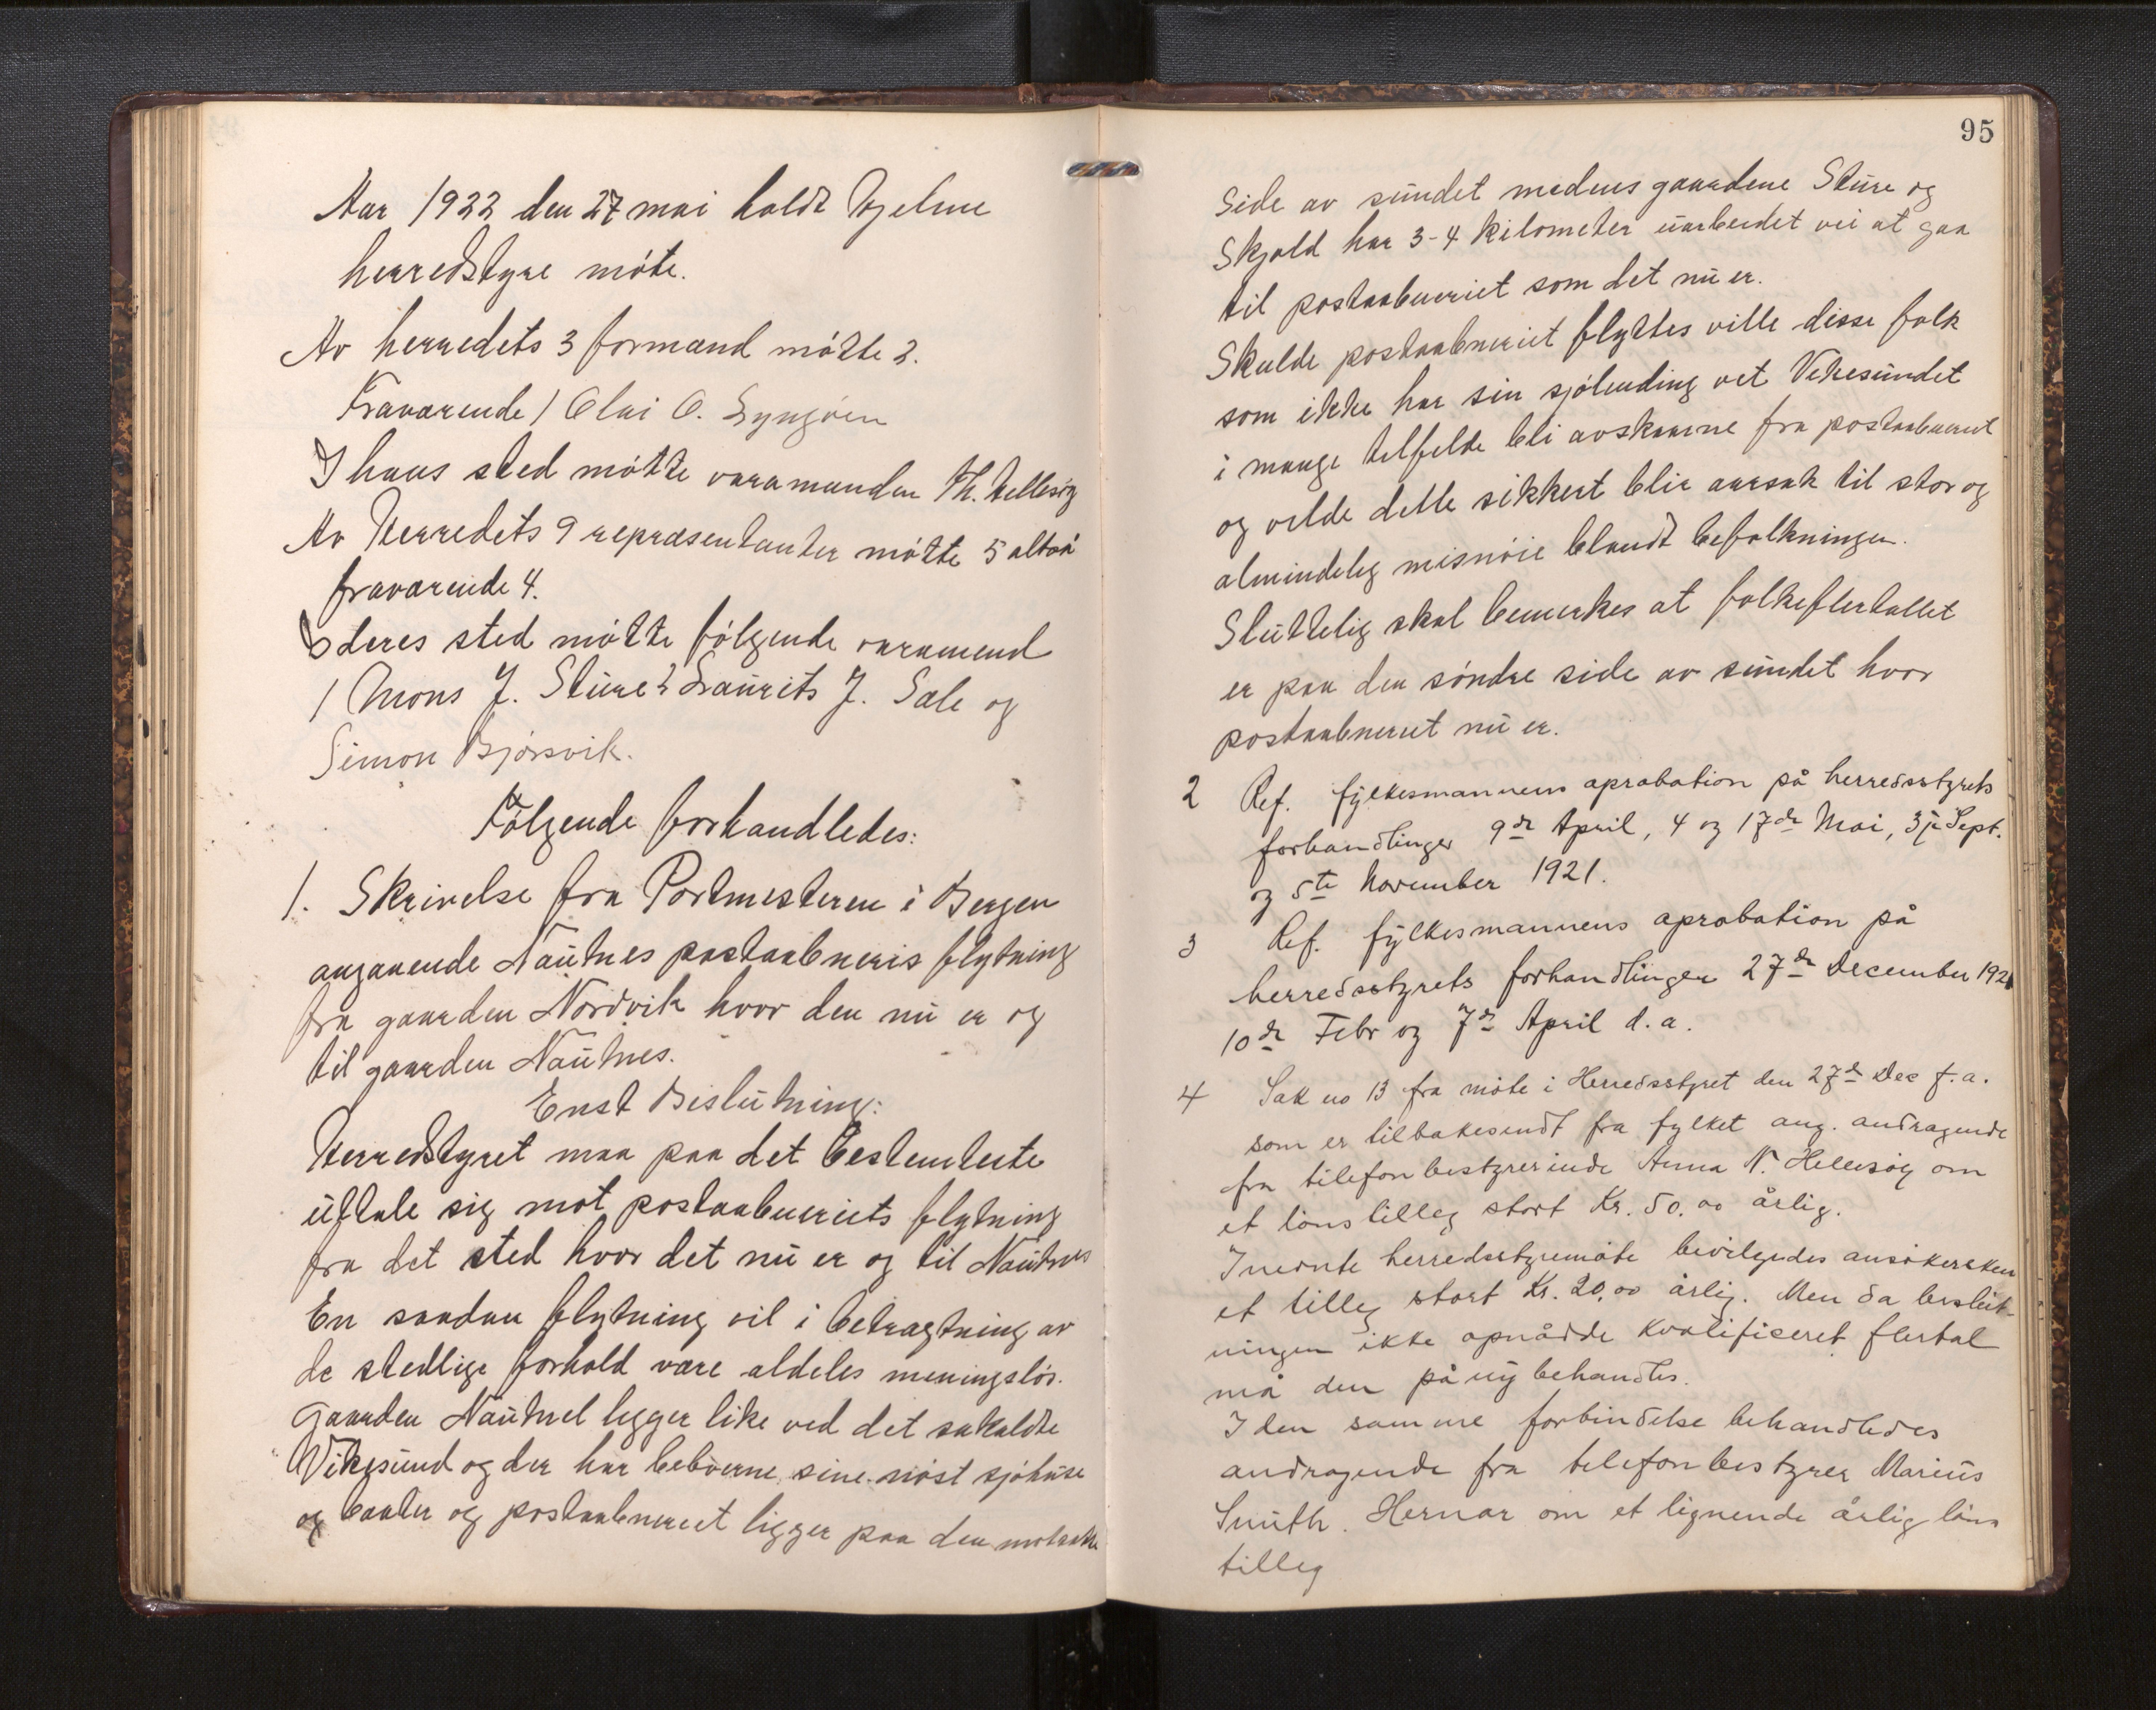 Aar 1922 den 27 mai holdt Hjelme
herredstyre møte.
Av herredets 3 formænd møtte 2.
Fraværende 1 Olai O. Lyngøen
I hans sted møtte varamanden Th. Hellesøy
Av Herredets 9 repræsentanter møtte 5 altså
fraværende 4.
I deres sted møtte følgende varamend
1 Mons J. Sture 2 Laurits J. Sæle og
Simon Bjørsvik.
Følgende forhandledes:
1. Skrivelse fra Postmesteren i Bergen
angaaende Nautnes postaabneris flytning
fra gaarden Nordvik hvor den nu er og
til gaarden Nautnes.
Enst Beslutning:
Herredstyret maa paa det bestemteste
uttale sig mot postaabneriets flytning
fra det sted hvor det nu er og til Nautnes
En saadan flytning vil i betragtning av
de stedlige forhold være aldeles meningsløs.
Gaarden Nautnes ligger like ved det sakaldte
Vikesund og der har beboerne sine nøst sjøhuse
og baater og postaabneriet ligger paa den motsatte
95
Side av sundet medens gaardene Sture og
Skjold har 3-4 kilometer uarbeidet vei at gaa
til postaabneriet som det nu er.
Skulde postaabneriet flyttes ville disse folk
som ikke har sin sjølending vet Vikesundet
i mange tilfelde bli avskaarne fra postaabneriet
og vilde dette sikkert blir aarsak til stor og
almindelig misnøie blandt befolkningen.
Sluttelig skal bemerkes at folkeflertallet
er paa den søndre side av sundet hvor
postaabneriet nu er.
2 Ref. fylkesmannens aprobation på herredsstyrets
forhandlinger 9de April, 4 og 17de Mai, 3je Sept.
og 5te November 1921.
3 Ref. fylkesmannens aprobation på
herredsstyrets forhandlinger 27de December 1921
10de Febr og 7de April d.a.
4 Sak no 13 fra møte i Herredsstyret den 27de Dec f.a.
som er tilbakesendt fra fylket ang. andragende
fra telefonbestyrerinde Anna N. Hellesøy om
et lønstilleg stort Kr. 50.00 årlig.
I nevnte herredsstyremøte bevilgedes ansøkersken
et tilleg stort Kr. 20,00 årlig. Men da beslut-
ningen ikke opnådde kvalificeret flertal
må den på ny behandles.
I den samme forbindelse behandledes
andragende fra telefonbestyrer Marius
Smith. Hernar om et lignende årlig løns
tilleg